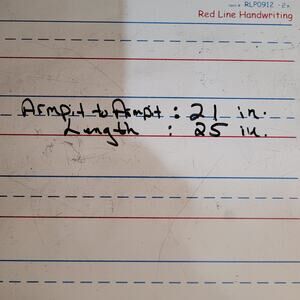 RLP0912 -2*
Red Line Handwriting
Armpit to Armpit : 21 in.
Length : 25 in.